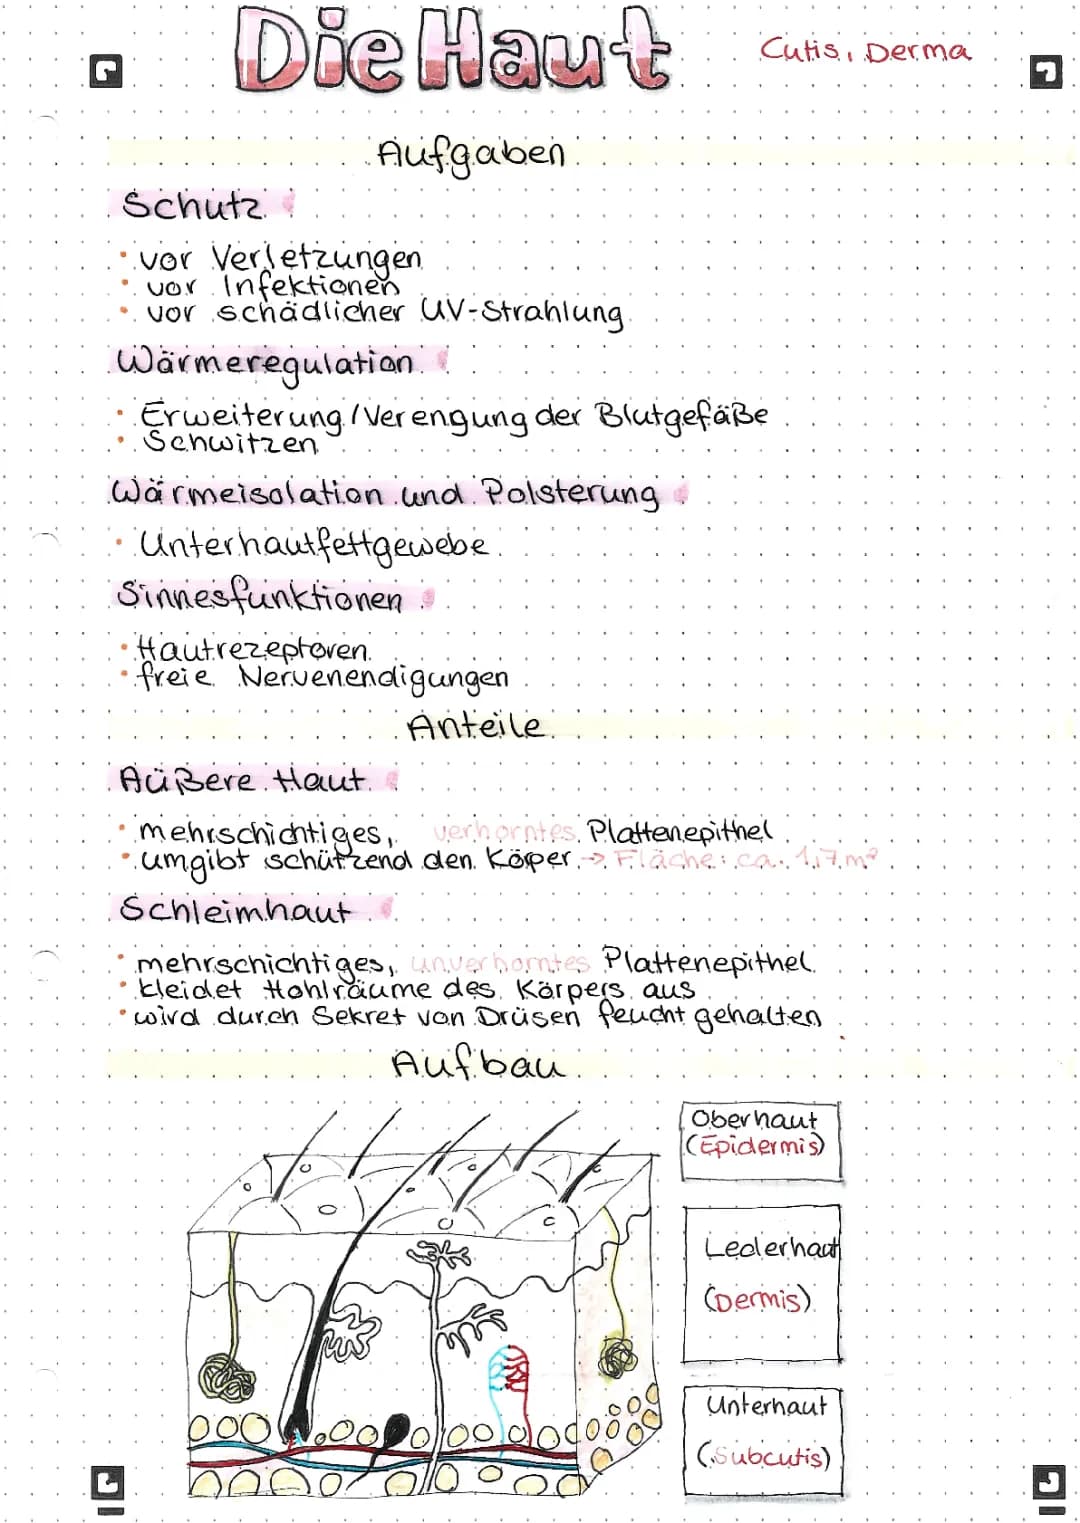 Die Haut
Cutis, Derma
Aufgaben
Schutz
• vor Verletzungen
• vor Infektionen
• vor schädlicher UV-Strahlung
Wärmeregulation
• Erweiterung/Verengung der Blutgefäße
• Schwitzen
Wärmeisolation und Polsterung
• Unterhautfettgewebe
Sinnesfunktionen
• Hautrezeptoren
• freie Nervenendigungen
Anteile
Äüßere Haut
• mehrschichtiges, verhorntes Plattenepithel
• umgibt schützend den Körper → Fläche: ca. 1,7 m²
Schleimhaut
• mehrschichtiges, unverhorntes Plattenepithel
• kleidet Hohlräume des Körpers aus
• wird durch Sekret von Drüsen feucht gehalten
Aufbau
Oberhaut
(Epidermis)
Lederhaut
(Dermis)
Unterhaut
(Subcutis)